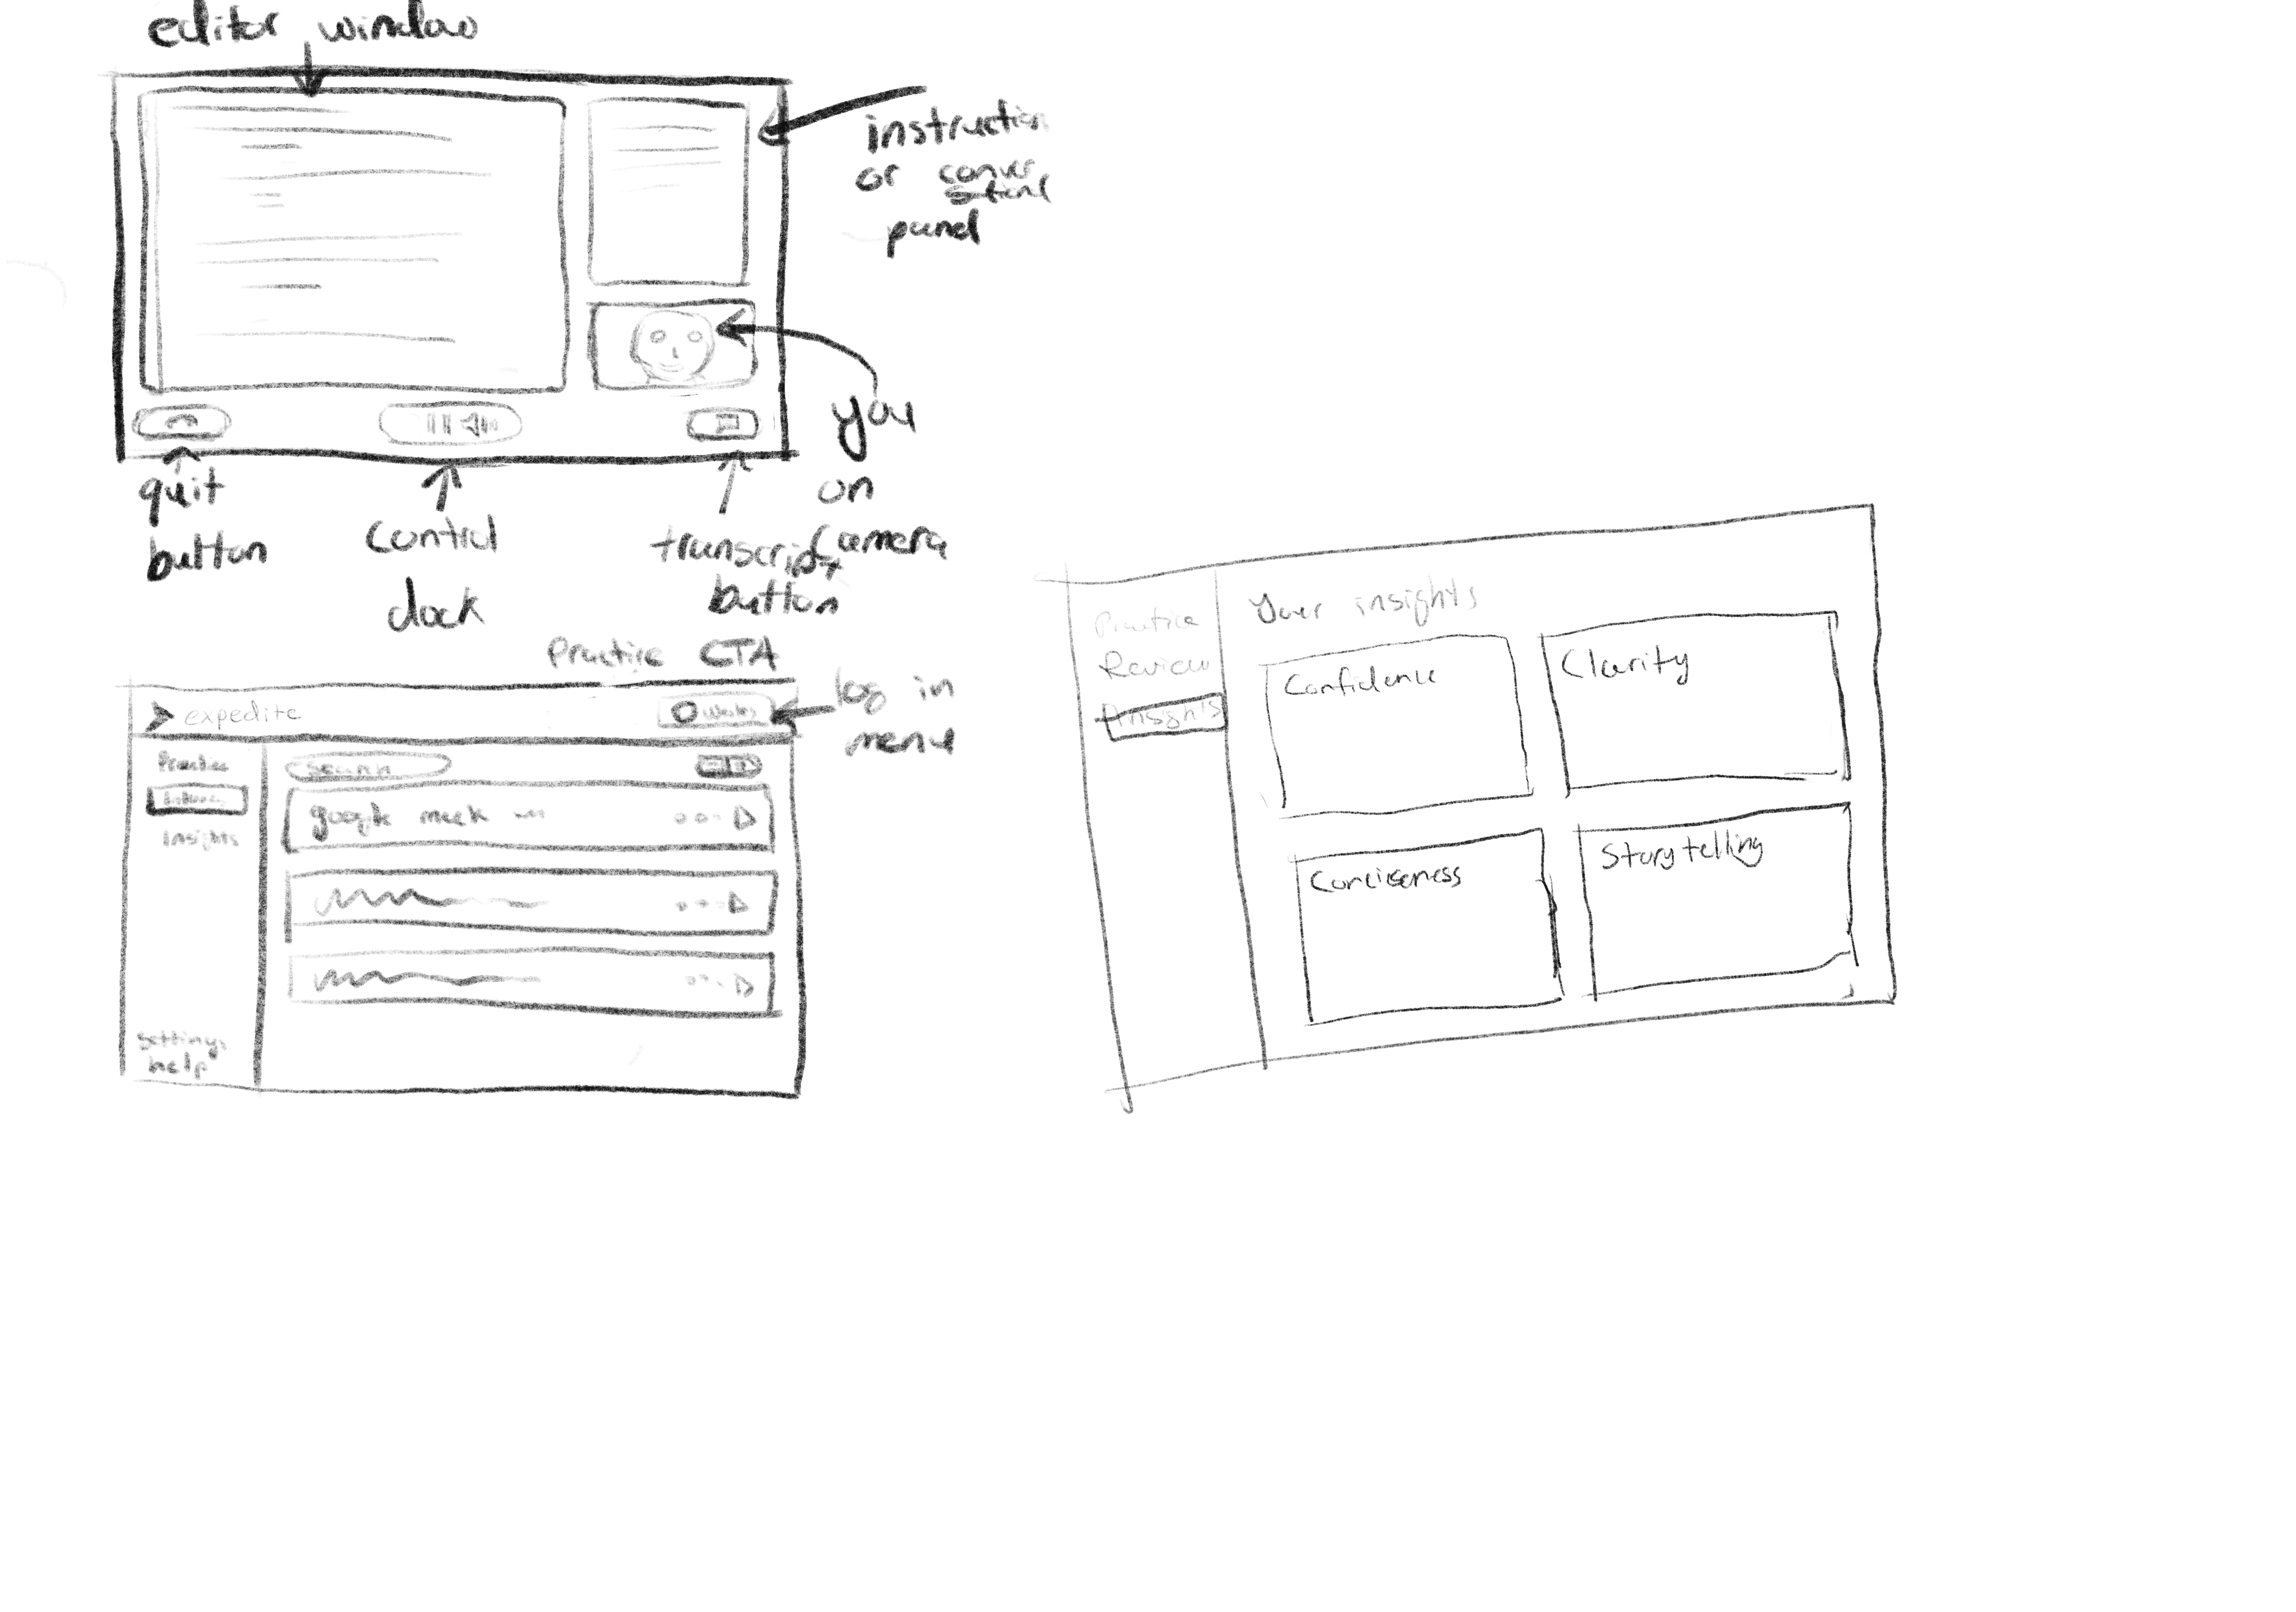 editor window
instruction
or conver
sational
panel
you
on
camera
quit
button
control
dock
transcript
button
Practice CTA
log in
menu
expedite
Practice
Insights
Settings
help
search
google mock
Practice
Review
Insights
Your insights
Confidence
Clarity
Conciseness
Storytelling